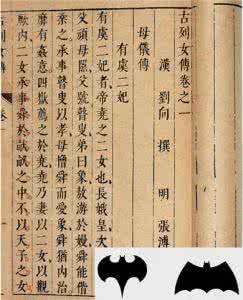 古列女傳卷之一
漢 劉向 撰 明 張溥
母儀傳
有虞二妃
有虞二妃者帝堯之二女也長娥皇次
父頑母嚚父號瞽叟弟曰象敖游於嫚舜能諧
柔之承事瞽叟以孝母憎舜而愛象舜猶內治
靡有姦意四嶽薦之於堯堯乃妻以二女以觀
厥內二女承事舜於畎畝之中不以天子之女